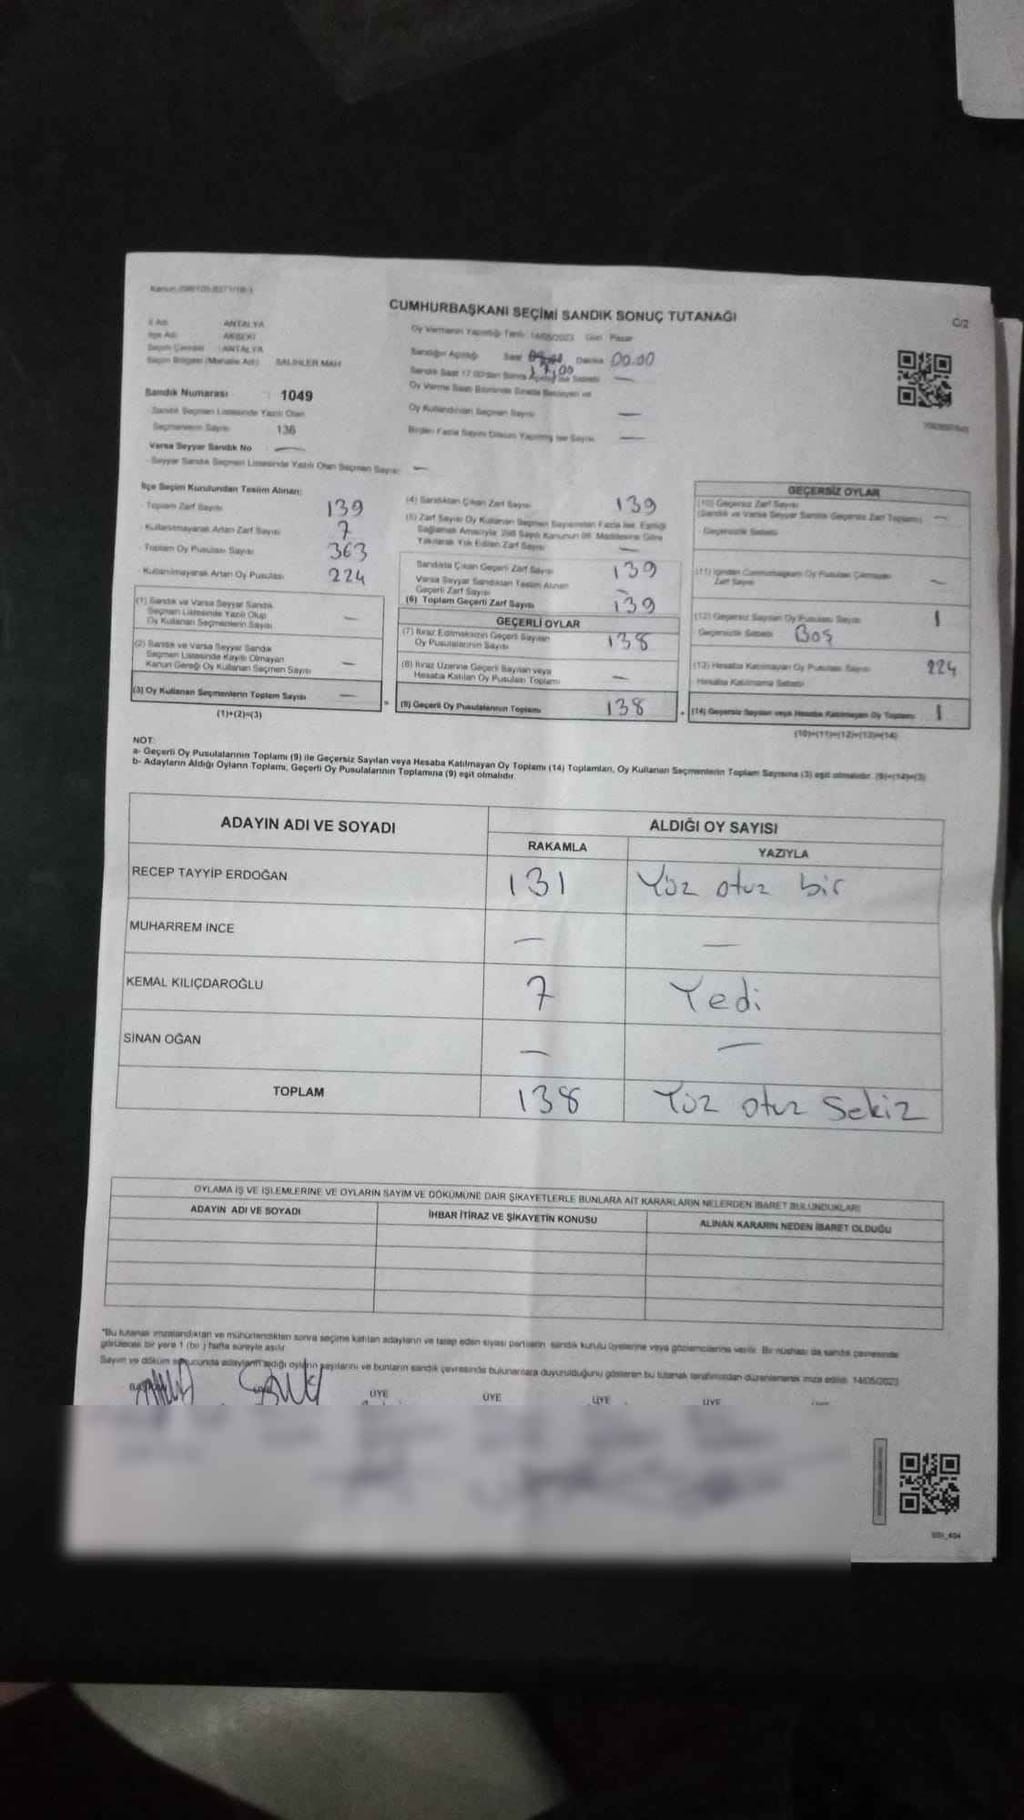 CUMHURBAŞKANI SEÇİMİ SANDIK SONUÇ TUTANAĞI
C/2
İl Adı ANTALYA
İlçe Adı AKSEKİ
Seçim Çevresi ANTALYA
Seçim Bölgesi (Mahalle Adı) SALİHLER MAH
Oy Vermenin Yapıldığı Tarih 14/05/2023 Gün Pazar
Sandığın Açıldığı Saat Dakika 00.00
17,00
Sandık Numarası : 1049
Sandık Seçmen Listesinde Yazılı Olan
Seçmenlerin Sayısı 136
Varsa Seyyar Sandık No —
Seyyar Sandık Seçmen Listesinde Yazılı Olan Seçmen Sayısı —
Oy Kullandırılan Seçmen Sayısı —
İlçe Seçim Kurulundan Teslim Alınan:
- Toplam Zarf Sayısı 139
- Kullanılmayarak Artan Zarf Sayısı 7
- Toplam Oy Pusulası Sayısı 363
- Kullanılmayarak Artan Oy Pusulası 224
(1) Sandık ve Varsa Seyyar Sandık
Seçmen Listesinde Yazılı Olup
Oy Kullanan Seçmenlerin Sayısı —
(2) Sandık ve Varsa Seyyar Sandık
Seçmen Listesinde Kayıtlı Olmayan
Kanun Gereği Oy Kullanan Seçmen Sayısı —
(3) Oy Kullanan Seçmenlerin Toplam Sayısı —
(1)+(2)=(3)
(4) Sandıktan Çıkan Zarf Sayısı 139
(5) Zarf Sayısı Oy Kullanan Seçmen Sayısından Fazla İse, Eşitliği
Sağlamak Amacıyla 298 Sayılı Kanunun 98. Maddesine Göre
Yakılarak Yok Edilen Zarf Sayısı —
Sandıkta Çıkan Geçerli Zarf Sayısı 139
Varsa Seyyar Sandıktan Teslim Alınan
Geçerli Zarf Sayısı —
(6) Toplam Geçerli Zarf Sayısı 139
GEÇERLİ OYLAR
(7) İtiraz Edilmeksizin Geçerli Sayılan
Oy Pusulalarının Sayısı 138
(8) İtiraz Üzerine Geçerli Sayılan veya
Hesaba Katılan Oy Pusulası Toplamı —
(9) Geçerli Oy Pusulalarının Toplamı 138
GEÇERSİZ OYLAR
(10) Geçersiz Zarf Sayısı
(Sandık ve Varsa Seyyar Sandık Geçersiz Zarf Toplamı) —
Geçersizlik Sebebi
Zarf Sayısı —
(12) Geçersiz Sayılan Oy Pusulası Sayısı 1
Geçersizlik Sebebi Boş
(13) Hesaba Katılmayan Oy Pusulası Sayısı 224
Hesaba Katılmama Sebebi
(14) Geçersiz Sayılan veya Hesaba Katılmayan Oy Toplamı 1
(10)+(11)+(12)+(13)=(14)
NOT:
a- Geçerli Oy Pusulalarının Toplamı (9) ile Geçersiz Sayılan veya Hesaba Katılmayan Oy Toplamı (14) Toplamları, Oy Kullanan Seçmenlerin Toplam Sayısına (3) eşit olmalıdır. (9)+(14)=(3)
b- Adayların Aldığı Oyların Toplamı, Geçerli Oy Pusulalarının Toplamına (9) eşit olmalıdır.
ADAYIN ADI VE SOYADI ALDIĞI OY SAYISI
RAKAMLA YAZIYLA
RECEP TAYYİP ERDOĞAN 131 Yüz otuz bir
MUHARREM İNCE — —
KEMAL KILIÇDAROĞLU 7 Yedi
SİNAN OĞAN — —
TOPLAM 138 Yüz otuz Sekiz
OYLAMA İŞ VE İŞLEMLERİNE VE OYLARIN SAYIM VE DÖKÜMÜNE DAİR ŞİKAYETLERLE BUNLARA AİT KARARLARIN NELERDEN İBARET BULUNDUKLARI
ADAYIN ADI VE SOYADI İHBAR İTİRAZ VE ŞİKAYETİN KONUSU ALINAN KARARIN NEDEN İBARET OLDUĞU
*Bu tutanak imzalandıktan ve mühürlendikten sonra seçime katılan adayların ve talep eden siyasi partilerin sandık kurulu üyelerine veya gözlemcilerine verilir. Bir nüshası da sandık çevresinde
görülecek bir yere 1 (bir) hafta süreyle asılır.
Sayım ve döküm sonucunda adayların aldığı oyların sayılarını ve bunların sandık çevresinde bulunanlara duyurulduğunu gösteren bu tutanak tarafımızdan düzenlenerek imza edildi. 14/05/2023
ÜYE ÜYE ÜYE ÜYE